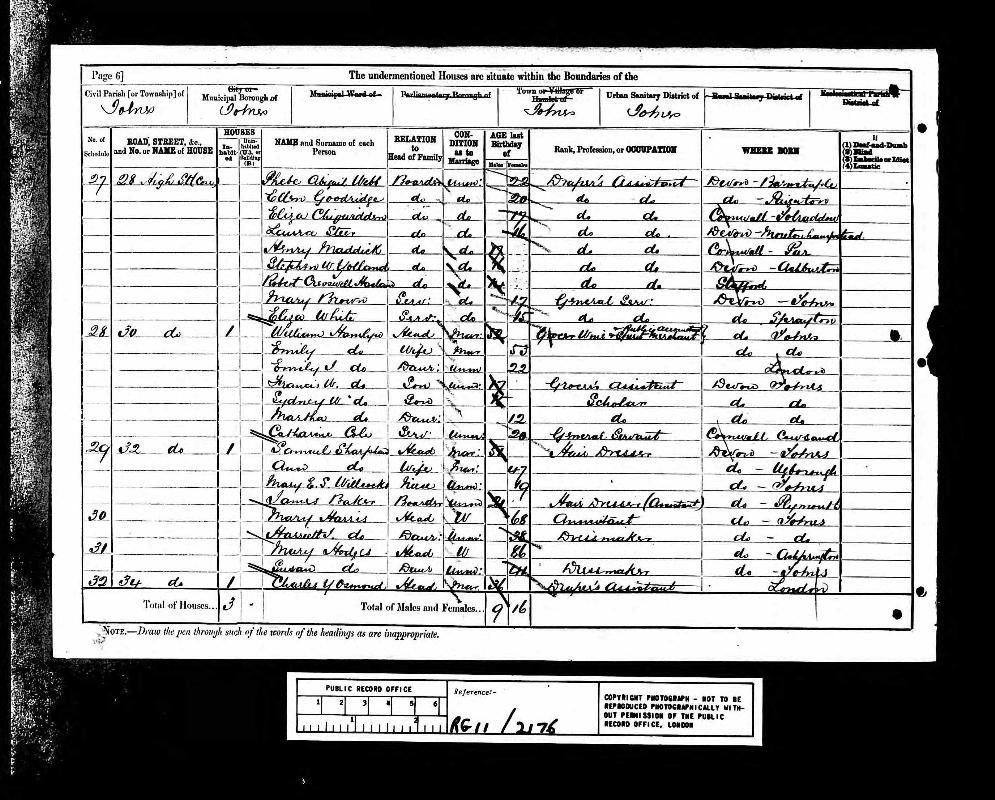 Page 6] The undermentioned Houses are situate within the Boundaries of the
Civil Parish [or Township] of City or Municipal Borough of Municipal Ward of Parliamentary Borough of Town or Village or Hamlet of Urban Sanitary District of Rural Sanitary District of Ecclesiastical Parish or District of
Totnes Totnes Totnes Totnes
No. of Schedule ROAD, STREET, &c., and No. or NAME of HOUSE HOUSES Inhabited Uninhabited (U.), or Building (B.) NAME and Surname of each Person RELATION to Head of Family CONDITION as to Marriage AGE last Birthday of Males Females Rank, Profession, or OCCUPATION WHERE BORN If (1) Deaf-and-Dumb (2) Blind (3) Imbecile or Idiot (4) Lunatic
27 28 High St Phebe Abigail Webb Boarder Unm: 22 Draper's Assistant Devon - Barnstaple
Ellen Goodridge do do 20 do do do -
Eliza do do 17 do do Cornwall -
Laura Steer do do 16 do do. Devon - Moretonhampstead
Henry Maddick do do do do Cornwall - Par
Stephen W. Yolland do do do do Devon - Ashburton
Robert do do do do Stafford
Mary Brown Serv: do 17 General Serv: Devon - Totnes
Eliza White Serv: do 15 do do do Sprayton
28 30 do 1 William Hamlyn Head Mar: 52 Grocer Wine & Merchant do Totnes
Emily do Wife Mar 53 do do
Emily J. do Daur: Unm 22 London
Francis W. do Son Unm: Grocer's Assistant Devon Totnes
Sydney W. do Son Scholar do do
Martha do Daur: 12 do do do
Catharine Cole Serv: Unm: 20 General Servant Cornwall Cawsand
29 32 do 1 Samuel Head Mar: Hair Dresser Devon - Totnes
Ann do Wife Mar: 47 do - Ugborough
Mary E. S. Willcocks Niece Unm: 19 do - Totnes
James Baker Boarder Unm 21 Hair Dresser (Assistant) do - Plymouth
30 Mary Harris Head W 68 Annuitant do - Totnes
Harriett J. do Daur: Unm: 38 Dressmaker do - do
31 Mary Hodges Head W 86 do - Ashprington
Susan do Daur Unm: Dressmaker do - Totnes
32 34 do 1 Charles Y Osmond Head Mar 36 Draper's Assistant London
Total of Houses... 3 - Total of Males and Females... 9 16
NOTE.—Draw the pen through such of the words of the headings as are inappropriate.
PUBLIC RECORD OFFICE
1 2 3 4 5 6
1 2
Reference:-
RG 11 / 2176
COPYRIGHT PHOTOGRAPH - NOT TO BE
REPRODUCED PHOTOGRAPHICALLY WITH-
OUT PERMISSION OF THE PUBLIC
RECORD OFFICE, LONDON